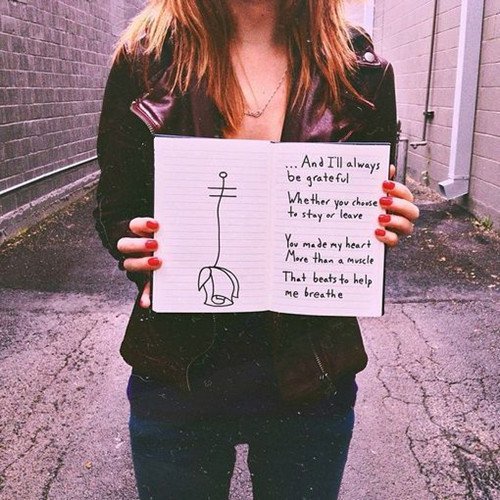 ... And I'll always
be grateful
Whether you choose
to stay or leave
You made my heart
More than a muscle
That beats to help
me breathe